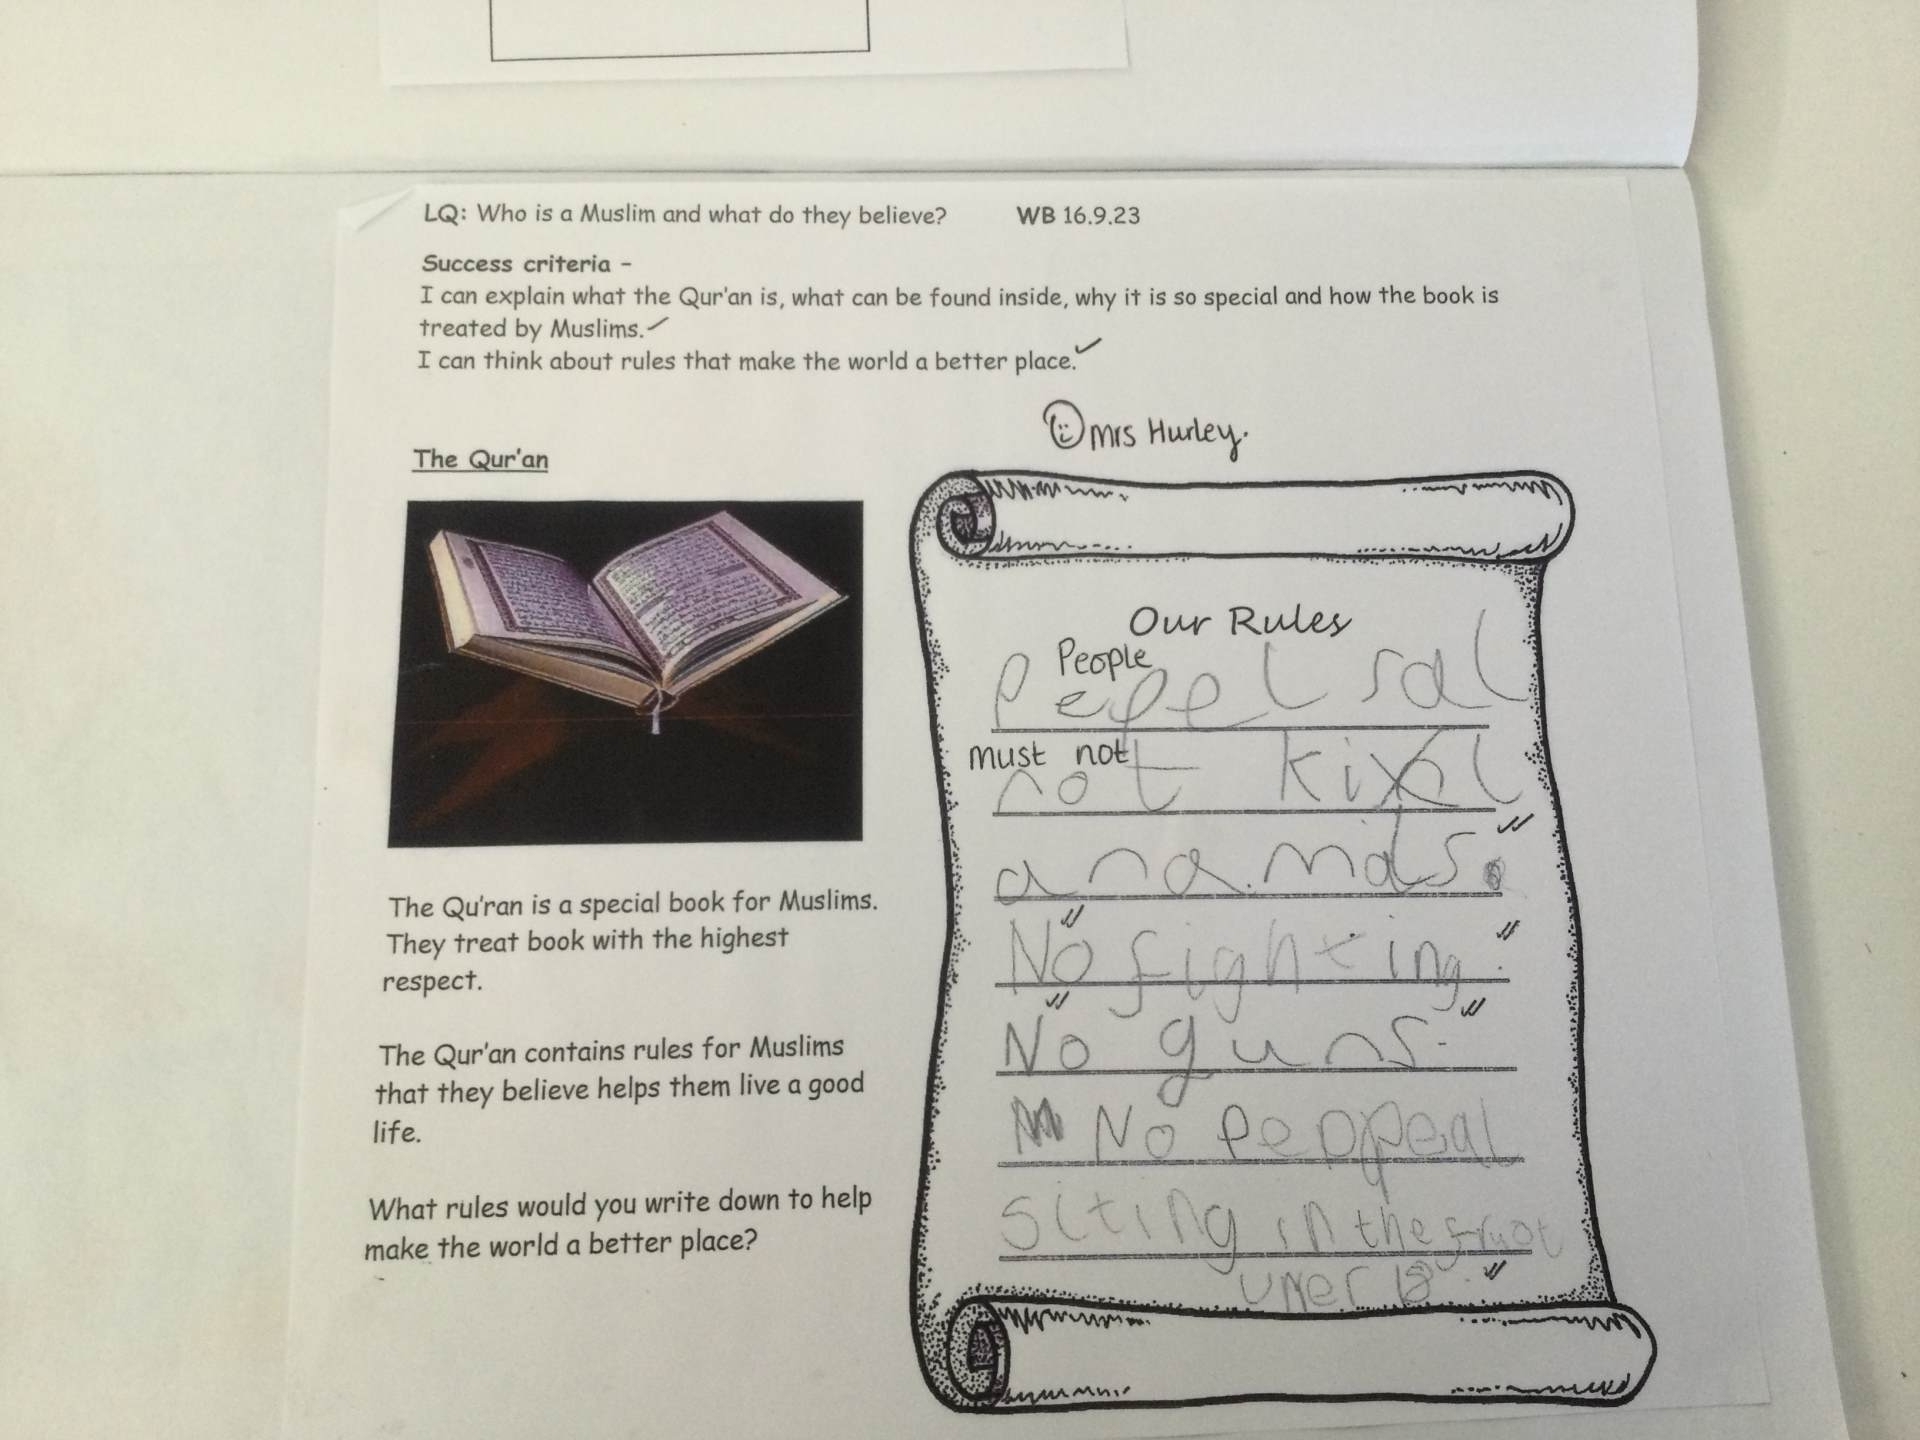 LQ: Who is a Muslim and what do they believe? WB 16.9.23
Success criteria -
I can explain what the Qur'an is, what can be found inside, why it is so special and how the book is
treated by Muslims.
I can think about rules that make the world a better place.
Mrs Hurley.
The Qur'an
The Qu'ran is a special book for Muslims.
They treat book with the highest
respect.
The Qur'an contains rules for Muslims
that they believe helps them live a good
life.
What rules would you write down to help
make the world a better place?
Our Rules
People
Pepel sal
must not
not kill
anamals.
No fighting.
No guns.
No peppeal
siting in the frunt
uner 13.